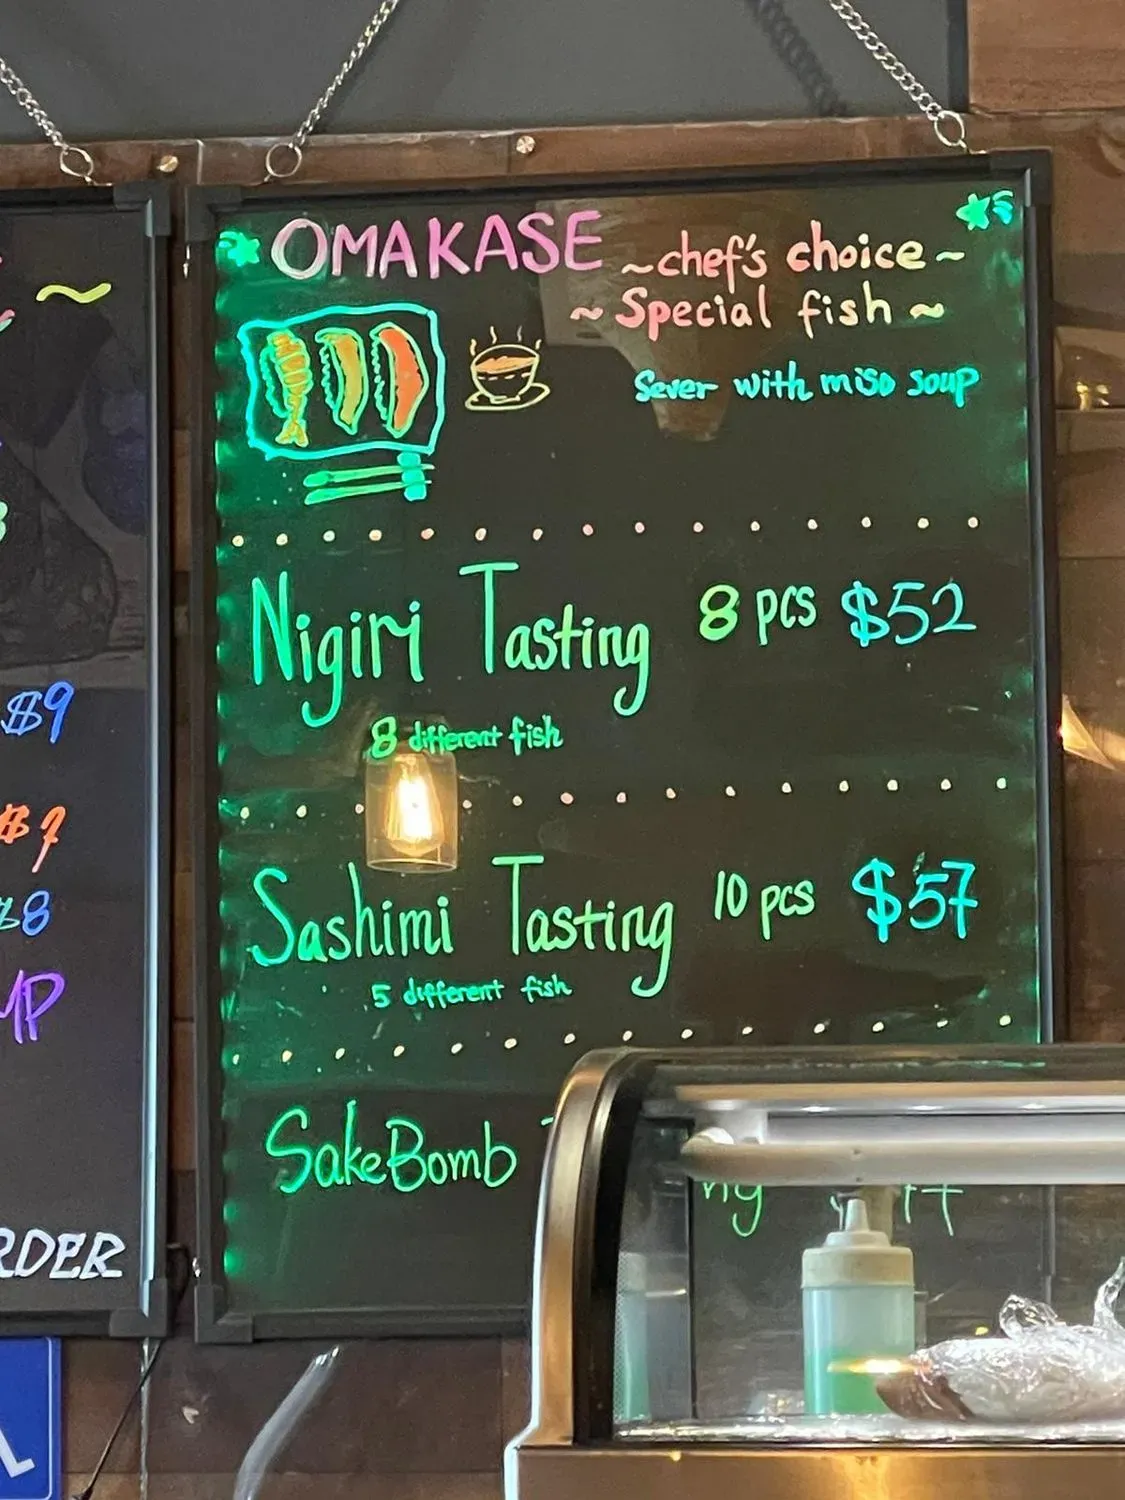 OMAKASE ~chef's choice~
~ Special fish ~
Sever with miso soup
Nigiri Tasting 8 pcs $52
8 different fish
Sashimi Tasting 10 pcs $57
5 different fish
SakeBomb
$9
$7
$8
RDER